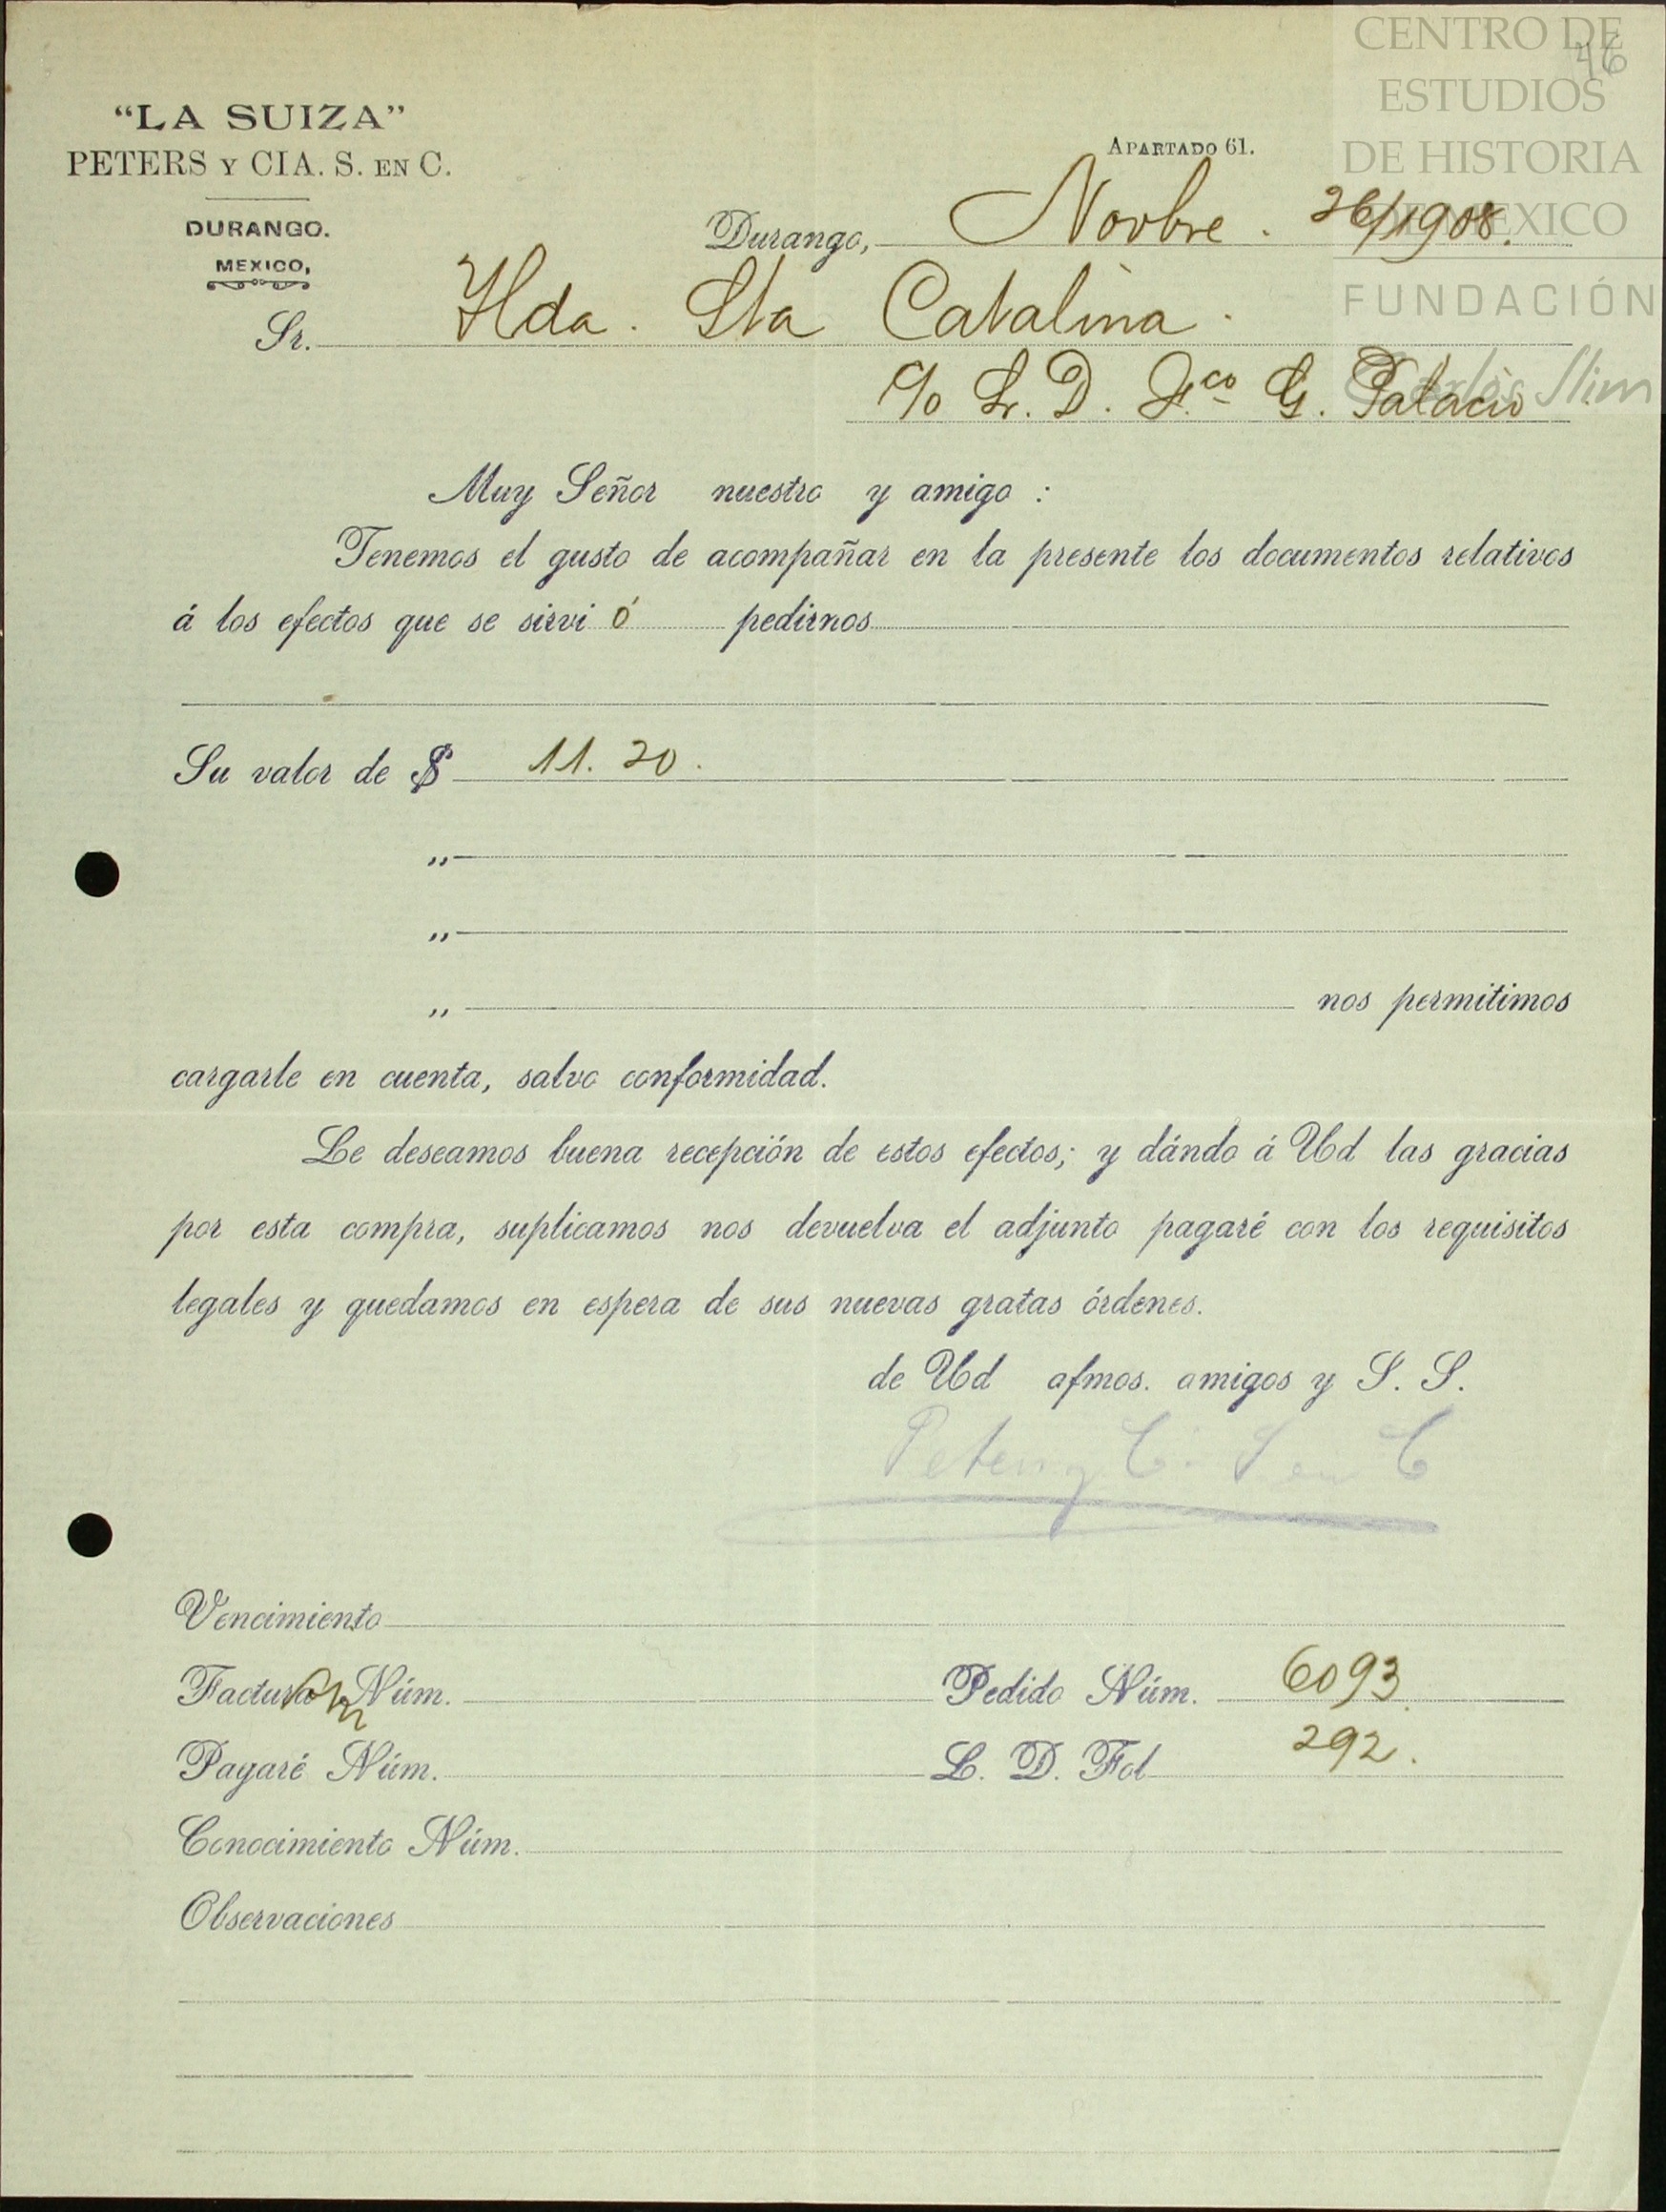 CENTRO DE
ESTUDIOS
DE HISTORIA
DE MEXICO
FUNDACIÓN
Carlos Slim
46
"LA SUIZA"
PETERS Y CIA. S. EN C.
DURANGO.
MEXICO,
APARTADO 61.
Durango, Novbre. 26/1908.
Sr. Hda. Sta Catalina.
c/o Sr. D. Fco G. Palacio
Muy Señor nuestro y amigo :
Tenemos el gusto de acompañar en la presente los documentos relativos
á los efectos que se sirvi ó pedirnos
Su valor de $ 11.20.
"
"
" nos permitimos
cargarle en cuenta, salvo conformidad.
Le deseamos buena recepción de estos efectos; y dándo á Ud las gracias
por esta compra, suplicamos nos devuelva el adjunto pagaré con los requisitos
legales y quedamos en espera de sus nuevas gratas órdenes.
de Ud afmos. amigos y S. S.
Peters y C. S en C
Vencimiento
Factura Núm. Pedido Núm. 6093.
Pagaré Núm. L. D. Fol 292.
Conocimiento Núm.
Observaciones